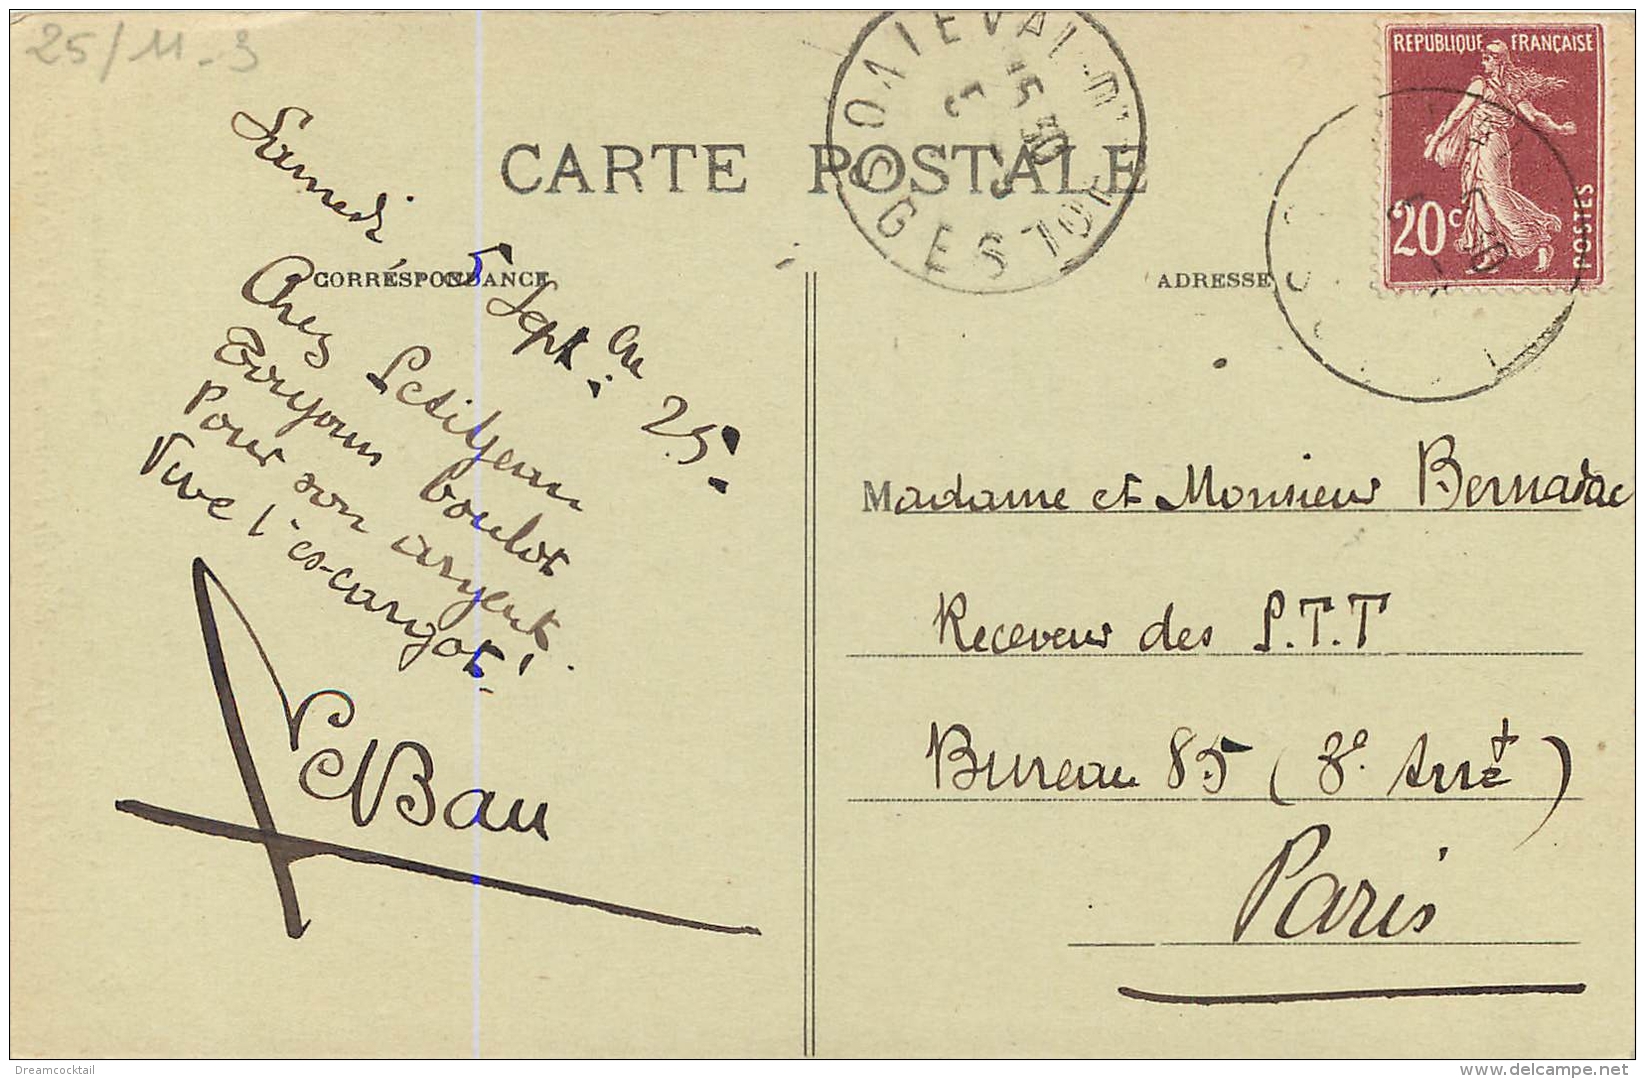 25/11-3
CARTE POSTALE
CORRESPONDANCE
ADRESSE
REPUBLIQUE FRANÇAISE
20c
POSTES
15 30
VOSGES
Samedi 5 Sept. au 25.
Chez Petitjean
Toujours boulot
Pour son argent.
Vive l'es-cargot!
LeBau
Madame et Monsieur Bernadac
Receveur des P.T.T
Bureau 85 (8e Arrt)
Paris
Dreamcocktail
delcampe.net